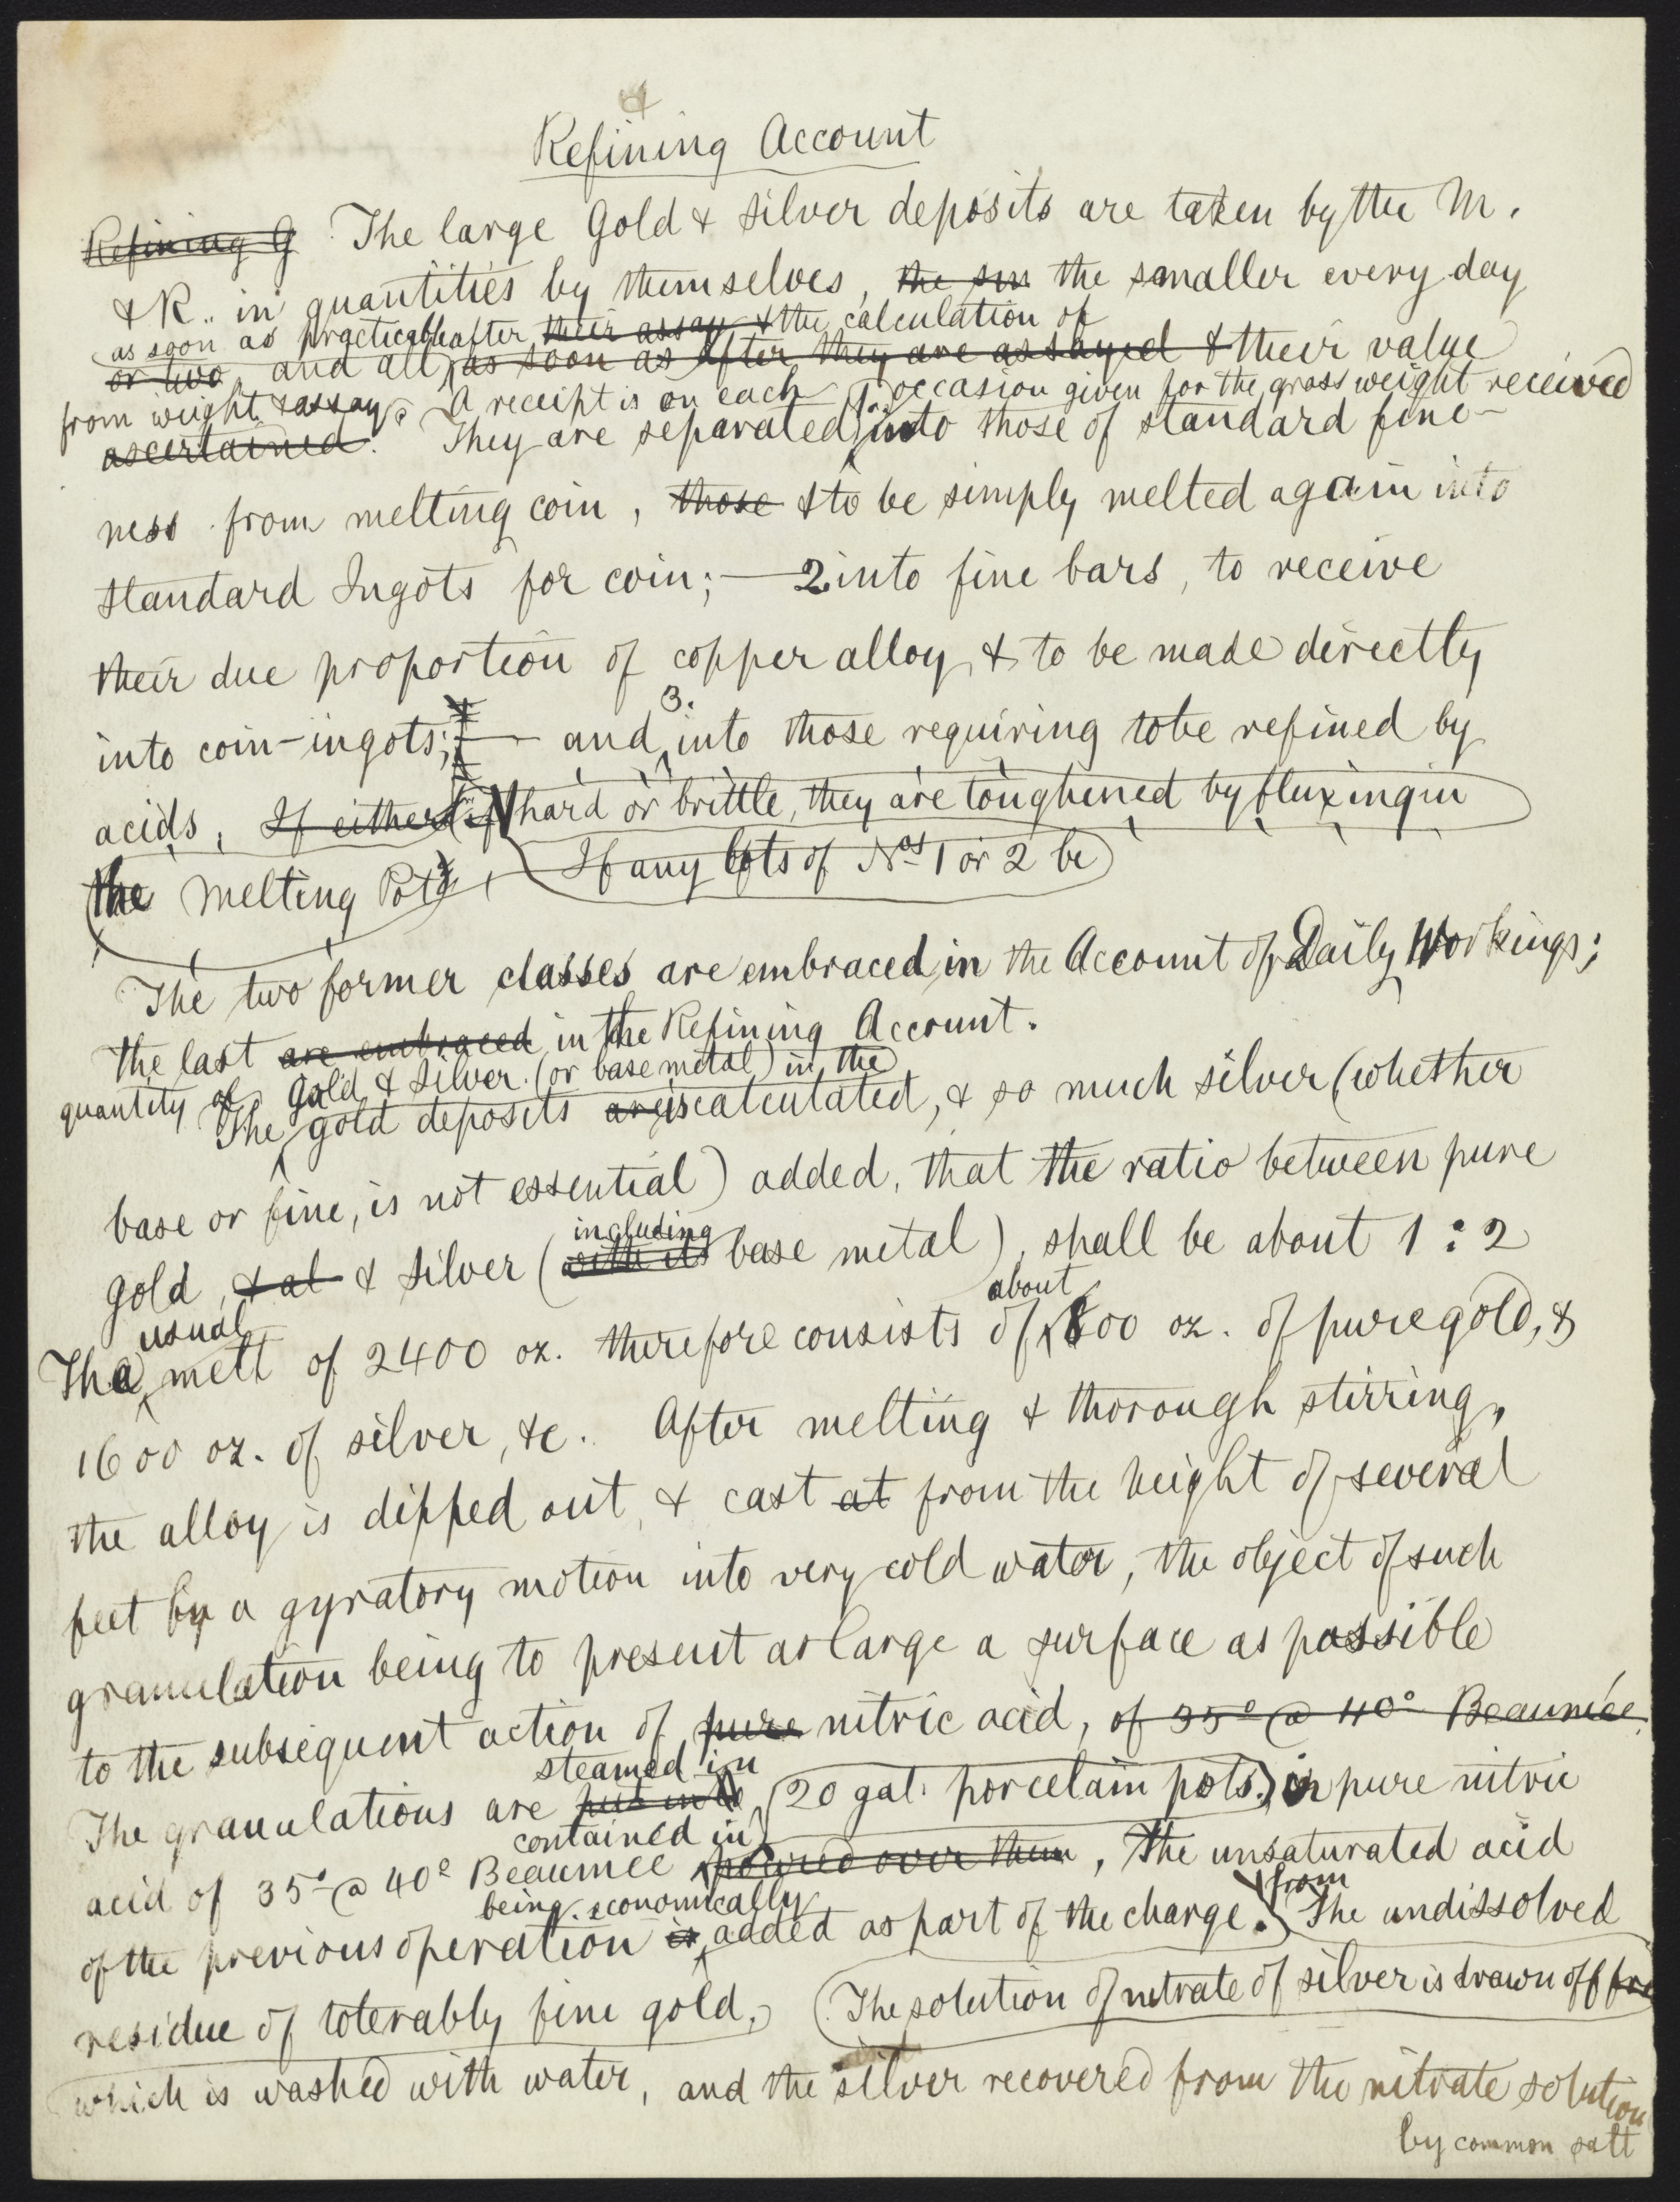 4
Refining Account
Refining G The large Gold & Silver deposits are taken by the M.
& R. in quantities by themselves, the sm the smaller every day
as soon as practicable after their assay & the calculation of
or two, and all as soon as after they are assayed & their value
from weight & assay. A receipt is on each occasion given for the gross weight received
ascertained. They are separated 1. into those of standard fine-
ness from melting coin, those & to be simply melted again into
standard Ingots for coin; — 2 into fine bars, to receive
their due proportion of copper alloy, & to be made directly
3.
into coin-ingots; — and into those requiring to be refined by
acids, If either if hard or brittle, they are toughened by fluxing in
the Melting Pots, If any lots of Nos 1 or 2 be
The two former classes are embraced in the Account of Daily Workings;
the last are embraced in the Refining Account.
quantity of Gold & Silver (or base metal) in the
The gold deposits are is calculated, & so much silver (whether
base or fine, is not essential) added, that the ratio between pure
including
gold, & al & silver (with its base metal), shall be about 1 : 2
usual about
The melt of 2400 oz. therefore consists of 800 oz. of pure gold, &
1600 oz. of silver, &c. After melting & thorough stirring,
the alloy is dipped out, & cast at from the height of several
feet by a gyratory motion into very cold water, the object of such
granulation being to present as large a surface as possible
to the subsequent action of pure nitric acid, of 35° @ 40° Beaumée.
steamed in
The granulations are put into (20 gal. porcelain pots.) in pure nitric
contained in
acid of 35° @ 40° Beaumée poured over them, The unsaturated acid
being economically from
of the previous operation is added as part of the charge. The undissolved
residue of tolerably fine gold, (The solution of nitrate of silver is drawn off fro
which is washed with water, and the silver recovered from the nitrate solution
by common salt